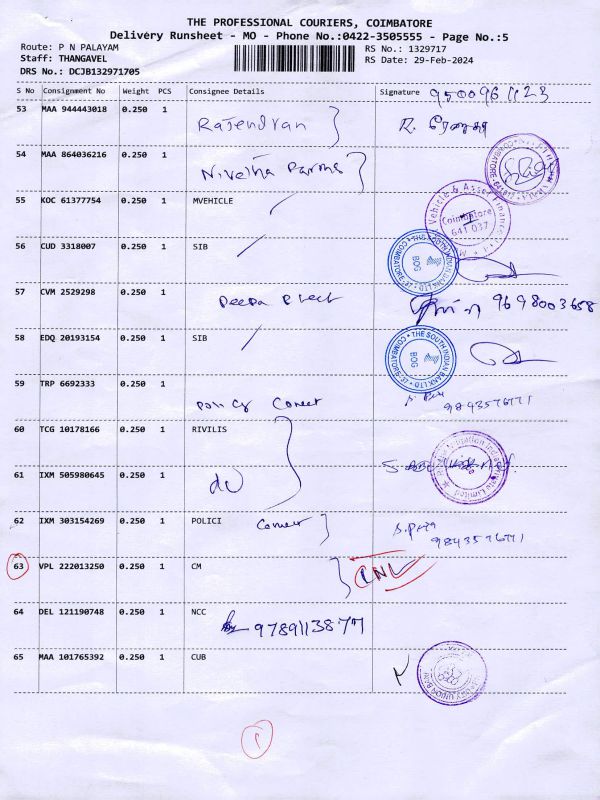 THE PROFESSIONAL COURIERS, COIMBATORE
Delivery Runsheet - MO - Phone No.:0422-3505555 - Page No.:5
Route: P N PALAYAM
RS No.: 1329717
Staff: THANGAVEL
RS Date: 29-Feb-2024
DRS No.: DCJB132971705
S No Consignment No Weight PCS Consignee Details Signature 9500961123
53 MAA 944443018 0.250 1 Rajendran R. ரேணுகா
54 MAA 864036216 0.250 1 Nivetha
55 KOC 61377754 0.250 1 MVEHICLE
Vehicle & Asset Finance
Coimbatore
641 037
56 CUD 3318007 0.250 1 SIB
THE SOUTH INDIAN BANK LTD
BOG
COIMBATORE-37
57 CVM 2529298 0.250 1 Deepa 9698003658
58 EDQ 20193154 0.250 1 SIB
THE SOUTH INDIAN BANK LTD
BOG
COIMBATORE-37
59 TRP 6692333 0.250 1 9843576771
60 TCG 10178166 0.250 1 RIVILIS
61 IXM 505980645 0.250 1 do
62 IXM 303154269 0.250 1 POLICI 9843576771
63 VPL 222013250 0.250 1 CM CNL
64 DEL 121190748 0.250 1 NCC 9789113877
65 MAA 101765392 0.250 1 CUB
1